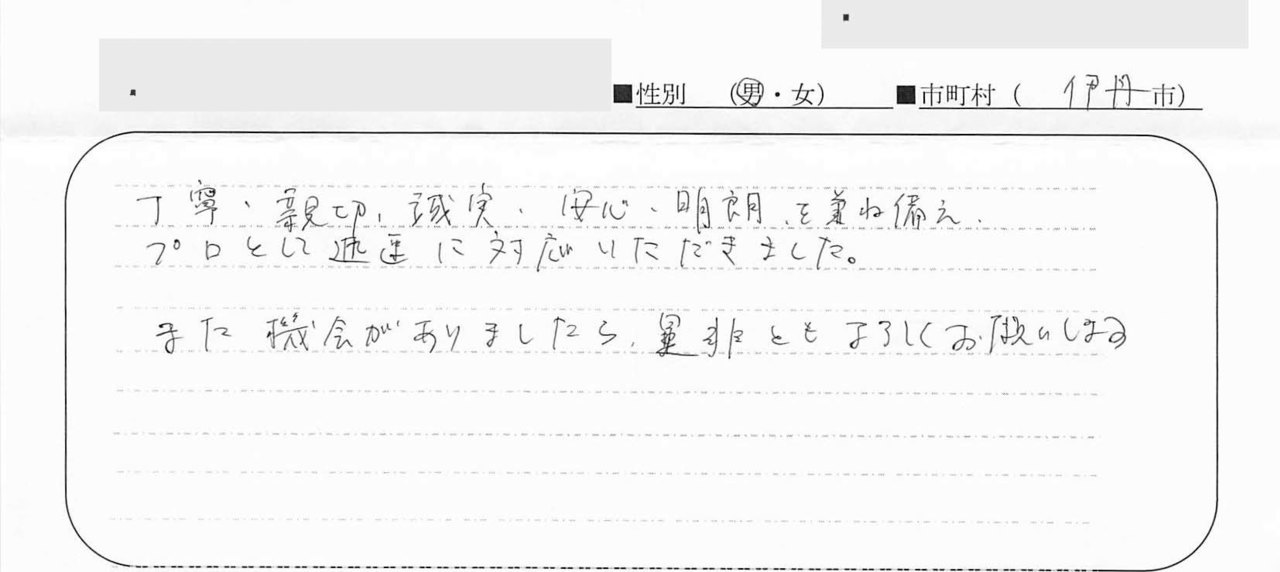 ■性別 (男・女) ■市町村 ( 伊丹市)
丁寧・親切、誠実・安心・明朗を兼ね備え、
プロとして迅速に対応いただきました。
また機会がありましたら、是非ともよろしくお願いします